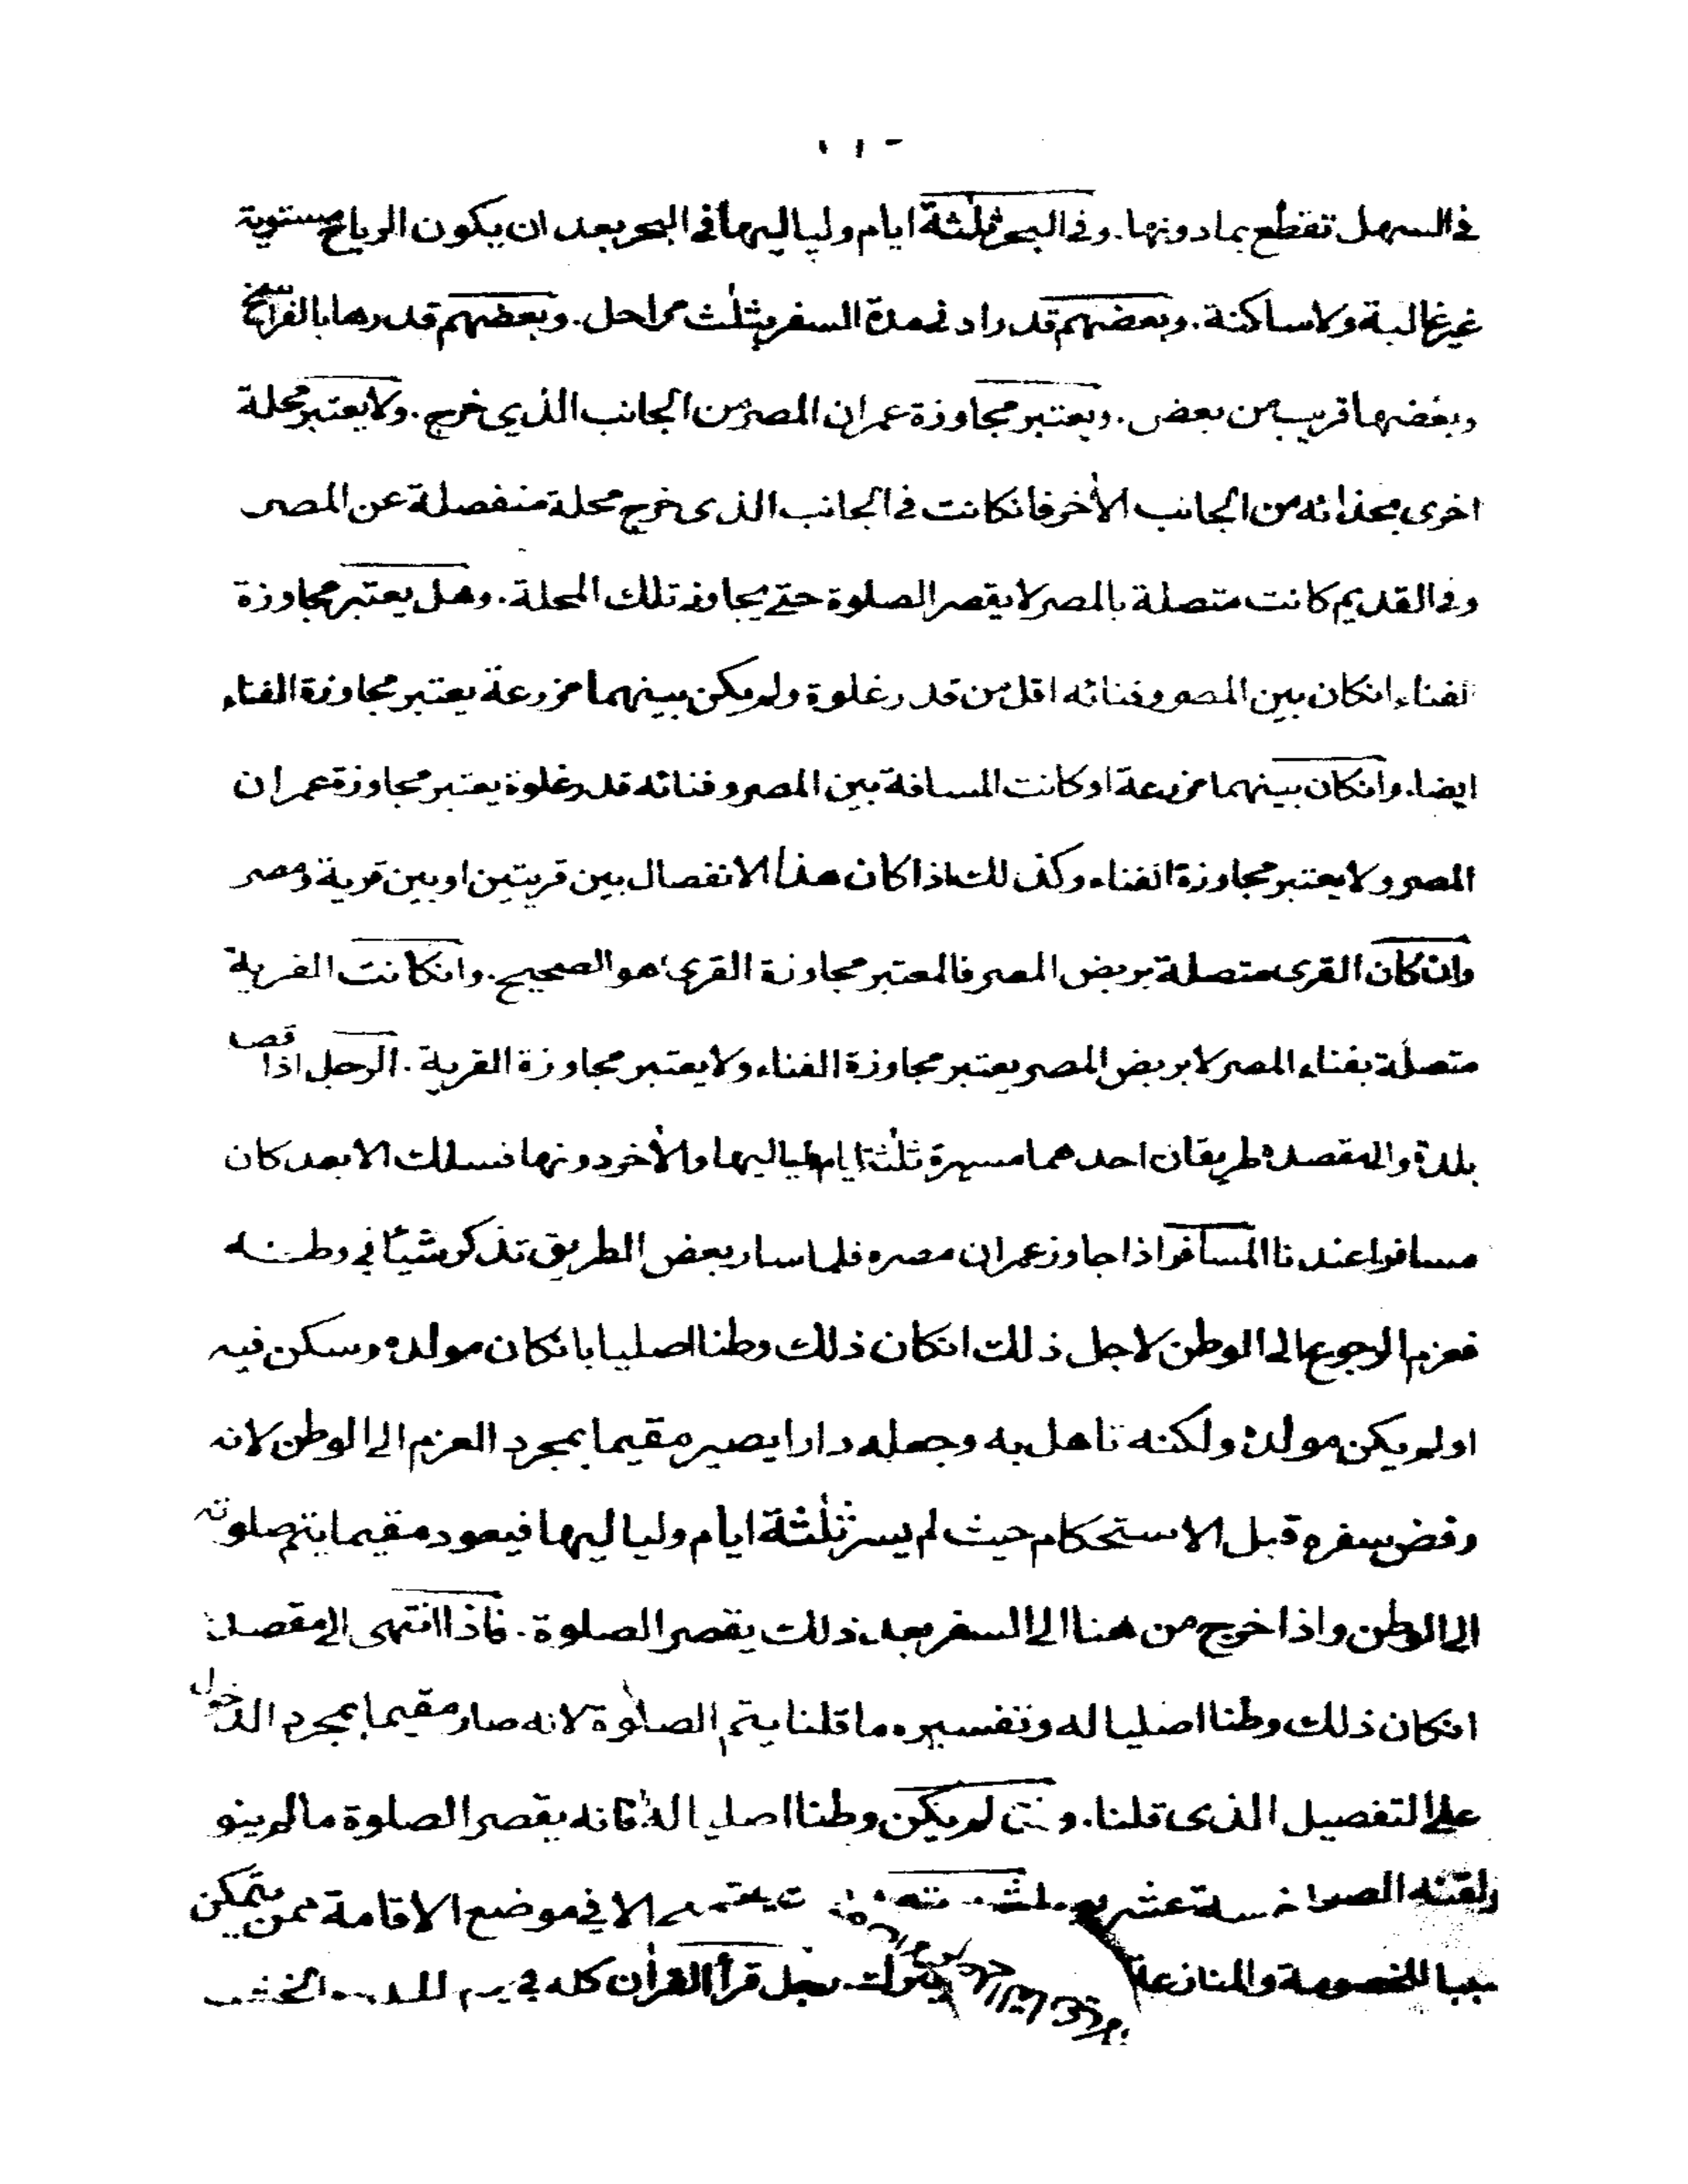 في السهل تقطع بمادونها. وفي البحر ثلثة ايام ولياليها في البحر بعد ان يكون الرياح مستوية
غير غالبة ولا ساكنة. وبعضهم قدراد في مدة السفر بثلث مراحل. وبعضهم قدرها بالفراسخ
وبعضها قريب من بعض. ويعتبر مجاوزة عمران المصر من الجانب الذي خرج. ولا يعتبر محلة
اخرى بحذائه من الجانب الأخر فانكانت في الجانب الذي خرج محلة منفصلة عن المصر
وفي القديم كانت متصلة بالمصر لا يقصر الصلوة حتى يجاوز تلك المحلة. وهل يعتبر مجاوزة
الفناء انكان بين المصر وفنائه اقل من قدر غلوة ولم يكن بينهما مزرعة يعتبر مجاوزة الفناء
ايضا. وانكان بينهما مزرعة او كانت المسافة بين المصر وفنائه قدر غلوة يعتبر مجاوزة عمران
المصر ولا يعتبر مجاوزة الفناء وكذلك اذا كان هذا الانفصال بين قريتين او بين قرية ومصر
وان كان القرى متصلة بربض المصر فالمعتبر مجاوزة القرى هو الصحيح. وانكانت القرية
متصلة بفناء المصر لا بربض المصر يعتبر مجاوزة الفناء ولا يعتبر مجاوزة القرية. الرجل اذا قصد
بلدة والى مقصده طريقان احدهما مسيرة ثلثة ايام ولياليها والأخر دونها فسلك الابعد كان
مسافرا عندنا المسافر اذا جاوز عمران مصره فلما سار بعض الطريق تذكر شيئا في وطنه
فعزم الرجوع الى الوطن لاجل ذلك انكان ذلك وطنا اصليا بانكان مولده وسكن فيه
او لم يكن مولده ولكنه تاهل به وجعله دارا يصير مقيما بمجرد العزم الى الوطن لانه
رفض سفره قبل الاستحكام حيث لم يسر ثلثة ايام ولياليها فيعود مقيما يتم صلوته
الى الوطن واذا خرج من هنا الى السفر بعد ذلك يقصر الصلوة. فاذا انتهى الى مقصده
انكان ذلك وطنا اصليا له وتفسيره ما قلنا يتم الصلوة لانه صار مقيما بمجرد الدخول
على التفصيل الذي قلنا. و لم يكن وطنا اصليا له فانه يقصر الصلوة ما لم ينو
خمسة عشر الا في موضع الاقامة ممن يتمكن
سببا للخصومة والمنازعة يترك. رجل قرأ القرأن كله في